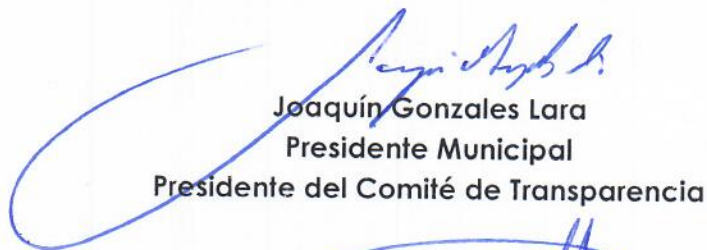 Joaquín Gonzales Lara
Presidente Municipal
Presidente del Comité de Transparencia